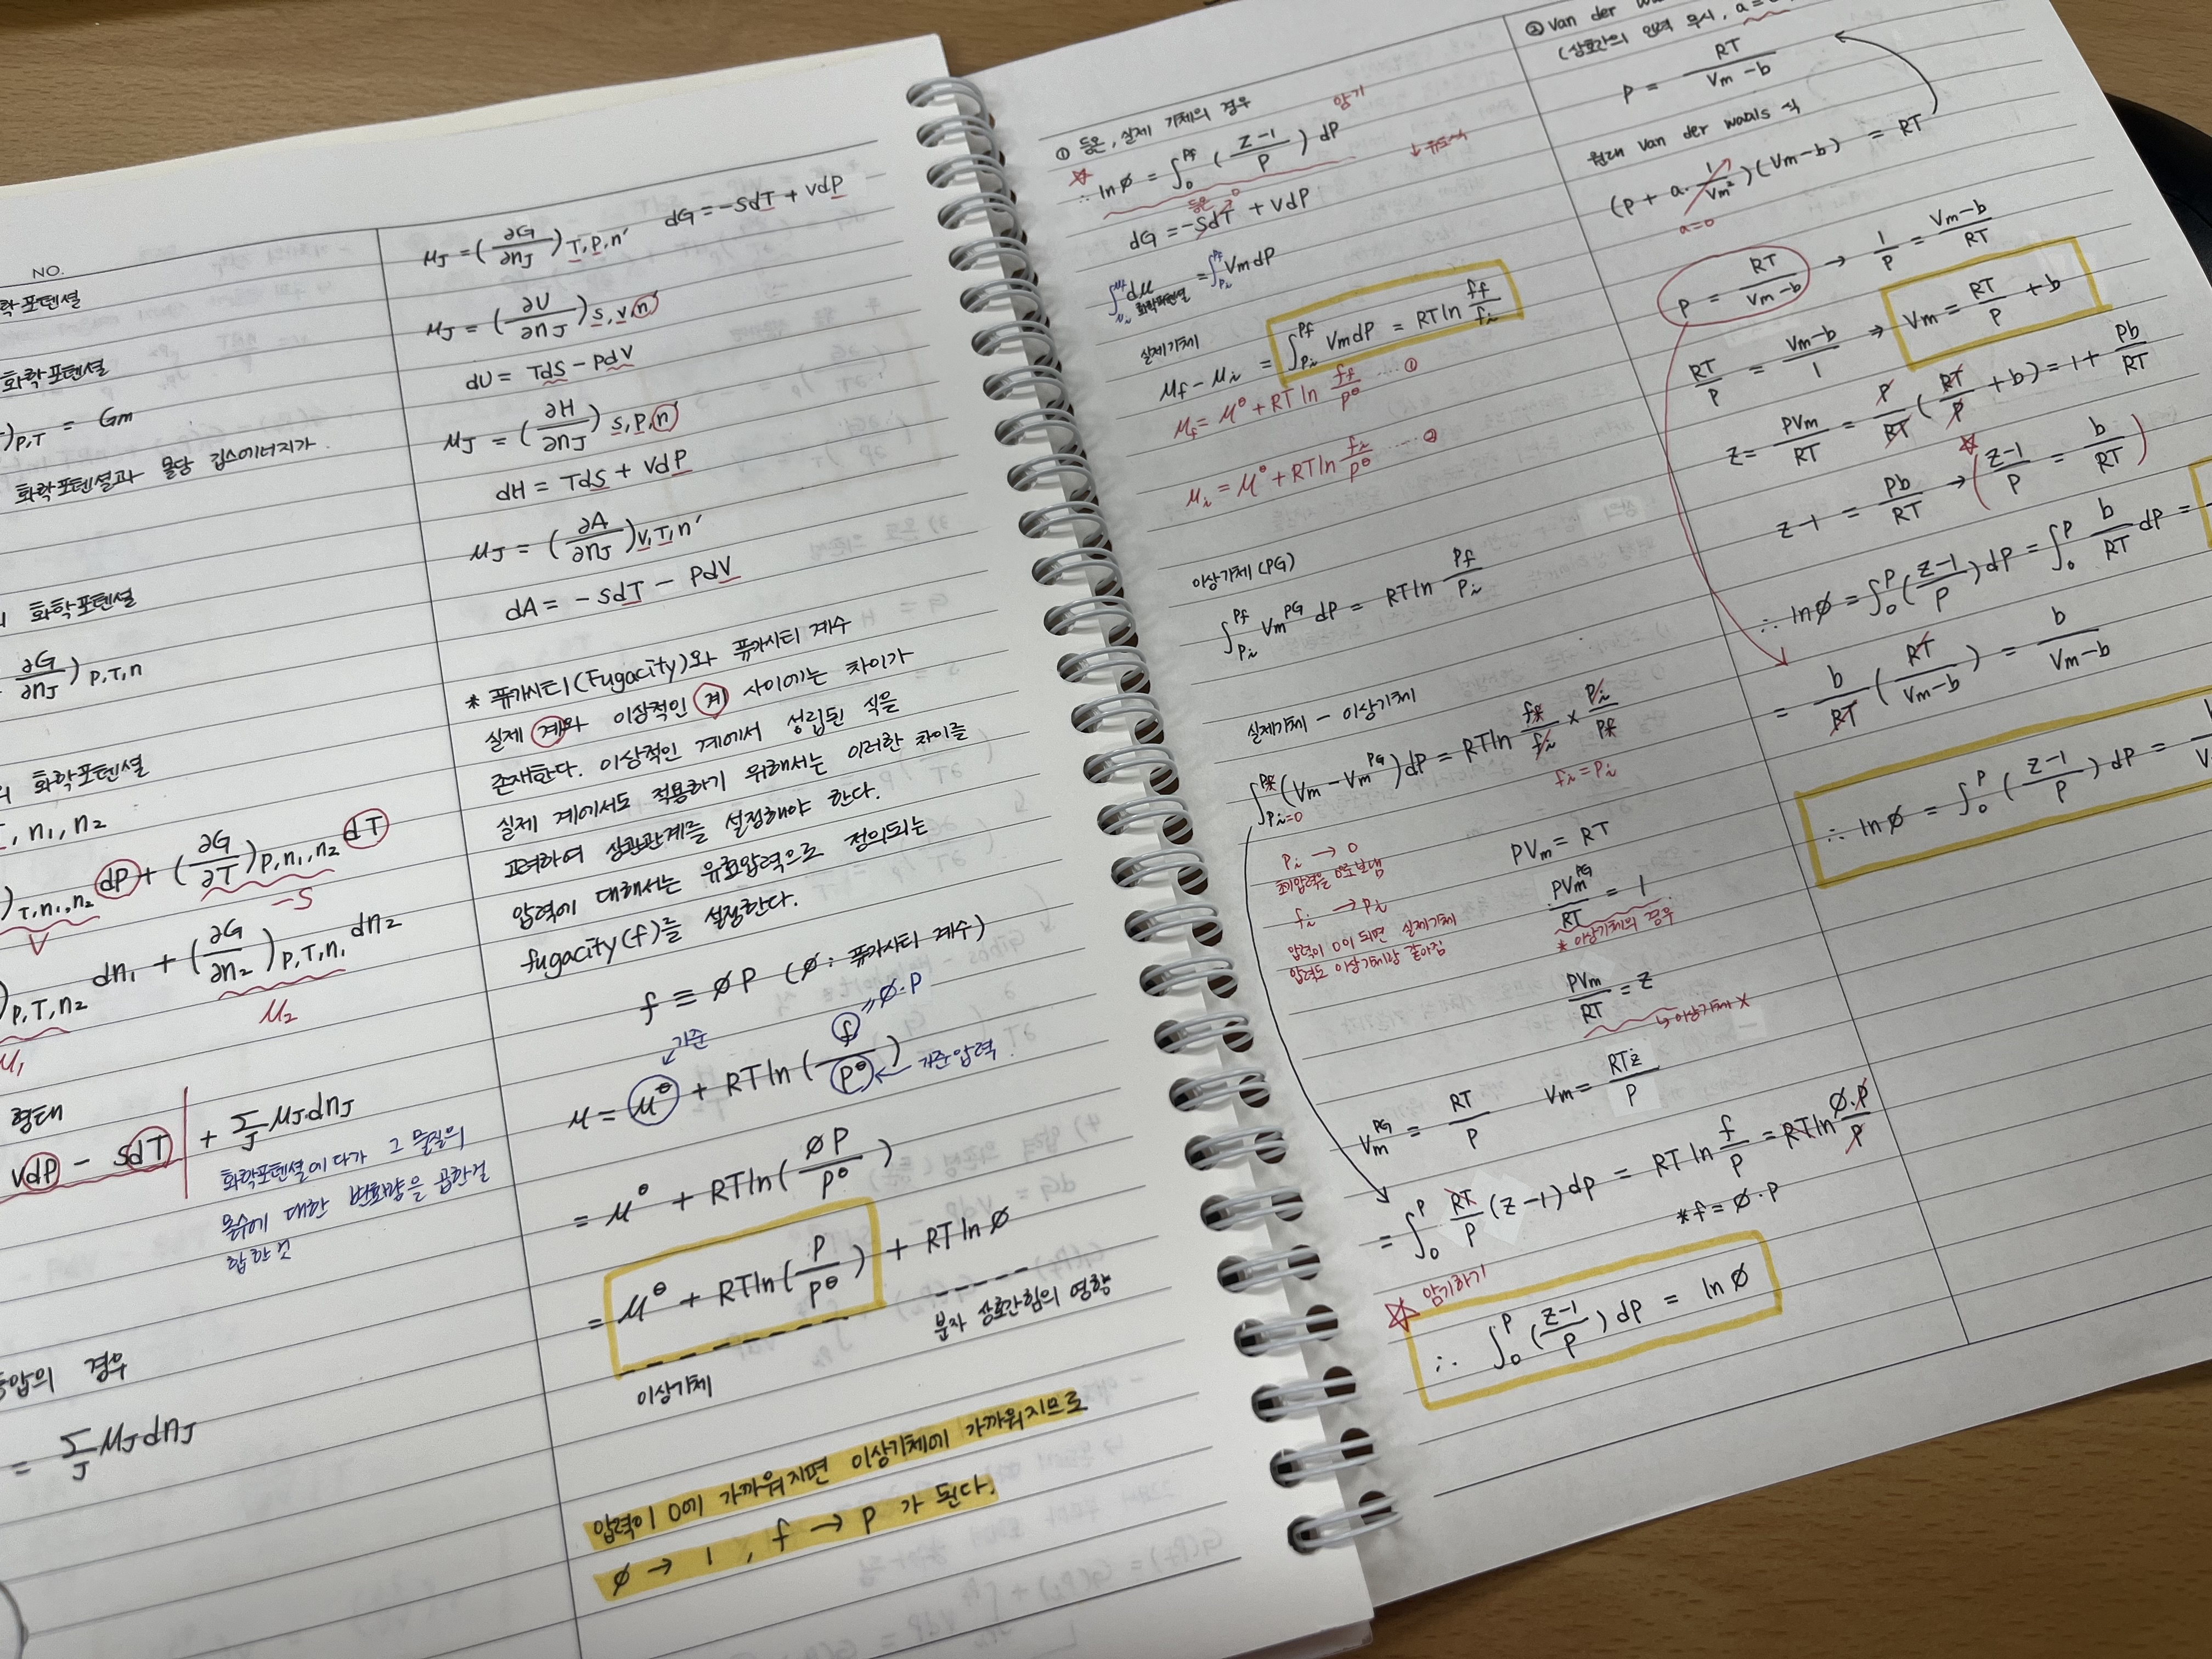 NO.
화학포텐셜
화학포텐셜
)P,T = Gm
화학포텐셜과 몰당 깁스에너지가
화학포텐셜
∂G/∂nJ ) P,T,n
화학포텐셜
, n1, n2
)T,n1,n2 dP + (∂G/∂T)P,n1,n2 dT
V
-S
)P,T,n2 dn1 + (∂G/∂n2)P,T,n1 dn2
μ1
μ2
형태
VdP - SdT + ΣJ μJdnJ
화학포텐셜에다가 그 물질의
몰수에 대한 변화량을 곱한걸
합한것
등압의 경우
= ΣJ μJdnJ
μJ = (∂G/∂nJ)T,P,n' dG = -SdT + VdP
μJ = (∂U/∂nJ)S,V,n'
dU = TdS - PdV
μJ = (∂H/∂nJ)S,P,n'
dH = TdS + VdP
μJ = (∂A/∂nJ)V,T,n'
dA = -SdT - PdV
* 퓨가시티(Fugacity)와 퓨가시티 계수
실제 계와 이상적인 계 사이에는 차이가
존재한다. 이상적인 계에서 성립된 식을
실제 계에서도 적용하기 위해서는 이러한 차이를
고려하여 상관관계를 설정해야 한다.
압력에 대해서는 유효압력으로 정의되는
fugacity(f)를 설정한다.
f ≡ ØP (Ø: 퓨가시티 계수)
기준
= Ø·P
μ = μ⊖ + RTln(f/P⊖) ← 기준압력.
= μ⊖ + RTln(ØP/P⊖)
= μ⊖ + RTln(P/P⊖) + RTlnØ
이상기체
분자 상호간힘의 영향
압력이 0에 가까워지면 이상기체에 가까워지므로
Ø → 1, f → P 가 된다.
① 등온, 실제 기체의 경우
암기
∴ lnØ = ∫0^Pf ((Z-1)/P) dP
↓ 유도식
등온 → 0
dG = -SdT + VdP
∫μi^μf dμ = ∫Pi^Pf VmdP
화학포텐셜
실제기체
μf - μi = ∫Pi^Pf VmdP = RTln ff/fi
μf = μ⊖ + RTln ff/P⊖ ····· ①
μi = μ⊖ + RTln fi/P⊖ ····· ②
이상기체(PG)
∫Pi^Pf Vm^PG dP = RTln Pf/Pi
실제기체 - 이상기체
∫Pi=0^Pf (Vm - Vm^PG)dP = RTln ff/fi × Pi/Pf
fi = Pi
Pi → 0
초기압력을 0으로 보냄
fi → Pi
압력이 0이 되면 실제기체
압력도 이상기체랑 같아짐
PVm = RT
PVm^PG/RT = 1
* 이상기체의 경우
PVm/RT = Z
↳ 이상기체 X
Vm^PG = RT/P Vm = RTZ/P
= ∫0^P RT/P (Z-1)dP = RT ln f/P = RTln Ø·P/P
* f = Ø·P
암기하기
∴ ∫0^P ((Z-1)/P) dP = lnØ
② van der
(상호간의 인력 무시, a =
P = RT/(Vm - b)
원래 van der waals 식
(P + a · 1/Vm²)(Vm - b) = RT
a = 0
P = RT/(Vm-b) → 1/P = (Vm-b)/RT
RT/P = (Vm-b)/1 ⇒ Vm = RT/P + b
Z = PVm/RT = P/RT (RT/P + b) = 1 + Pb/RT
Z-1 = Pb/RT → ((Z-1)/P = b/RT)
∴ lnØ = ∫0^P ((Z-1)/P) dP = ∫0^P b/RT dP =
= b/RT (RT/(Vm-b)) = b/(Vm-b)
∴ lnØ = ∫0^P ((Z-1)/P) dP =